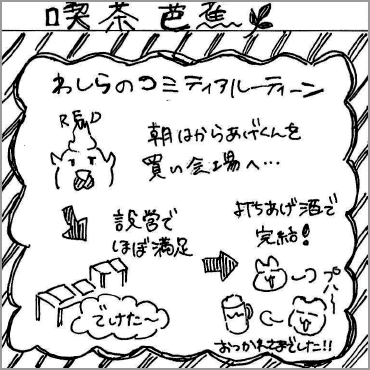 喫茶芭蕉
わしらのコミティアルーティーン
RED
朝はからあげくんを
買い会場へ…
設営で
ほぼ満足
でけた〜
打ちあげ酒で
完結!
プハ〜
おつかれさまでした!!